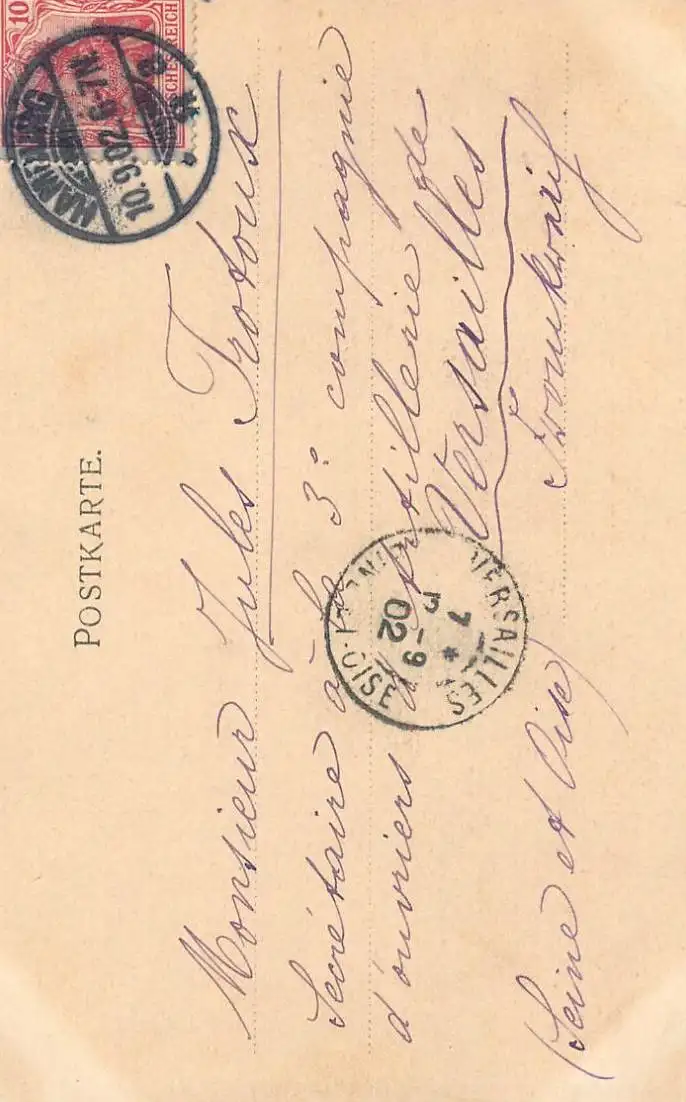 POSTKARTE.
10
DEUTSCHES REICH
HAMBURG
10.9.02. 6-7N.
Monsieur Jules Trotoux
Secrétaire à la 3e compagnie
d'ouviers d'Artillerie de
Versailles
(Seine et Oise) Frankreich
VERSAILLES
7
-9
02
OISE